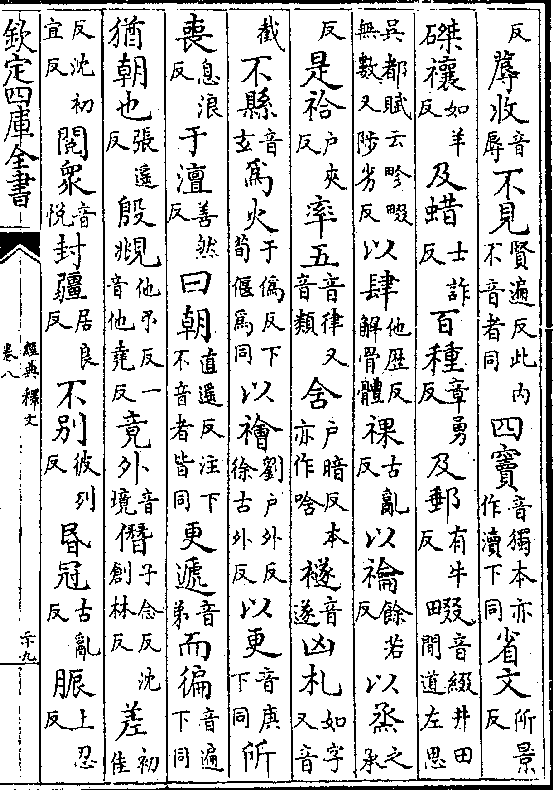 反蓐收音辱不見賢遍反此内不音者同四竇音獨本亦作瀆下同省文所景反
磔禳如羊反及蜡士詐反百種章勇反及郵有牛反畷音綴井田間道左思
吳都賦云畛畷無數又陟劣反以肆他歷反解骨體祼古亂反以禴餘若反以烝之承
反是祫户夾反率五音律又音類含户暗反本亦作唅禭音遂凶札如字又音
截不縣音玄爲火于僞反下荀偃爲同以禬劉户外反徐古外反以更音庚下同所
喪息浪反于澶善然反曰朝直遥反注下不音者皆同更遞音弟而徧音遍下同
猶朝也張遥反殷覜他弔反一音他堯反竟外音境僭子念反沈創林反差初佳
反沈初宜反閲衆音悦封疆居良反不别彼列反昏冠古亂反脤上忍反
欽定四庫全書
經典釋文
卷八